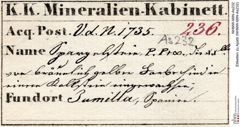 K. K. Mineralien-Kabinett.
Acq. Post. V. d. N. 1735. 236.
Aa 232
Name Spargelstein. P. Prox. In
von bräunlich gelber Farbe sind in
einem Kalkstein eingewachsen,
Fundort Jumilla, Spanien.